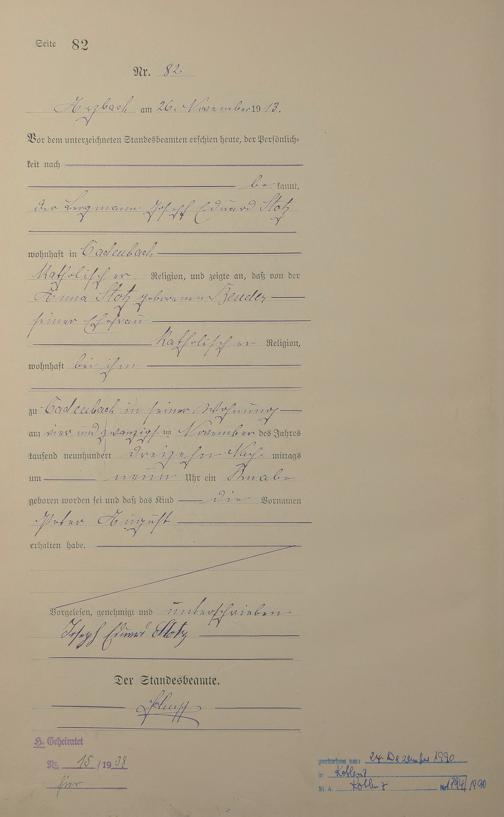 Seite 82
Nr. 82.
Arzbach am 26. November 1913.
Vor dem unterzeichneten Standesbeamten erschien heute, der Persönlich-
keit nach
be kannt,
der Bergmann Joseph Eduard Stotz
wohnhaft in Cadenbach
Katholischer Religion, und zeigte an, daß von der
Anna Stotz geborenen Bender
seiner Ehefrau
Katholischer Religion,
wohnhaft bei ihm
zu Cadenbach in seiner Wohnung
am vier und zwanzigsten November des Jahres
tausend neunhundert dreizehn Nach mittags
um neun Uhr ein Knabe
geboren worden sei und daß das Kind die Vornamen
Peter August
erhalten habe.
Vorgelesen, genehmigt und unterschrieben
Joseph Eduard Stotz
Der Standesbeamte.
H. Geheiratet
Nr. 15 / 1938
hier
gestorben am: 24. Dezember 1990
in Koblenz
St. A. Koblenz